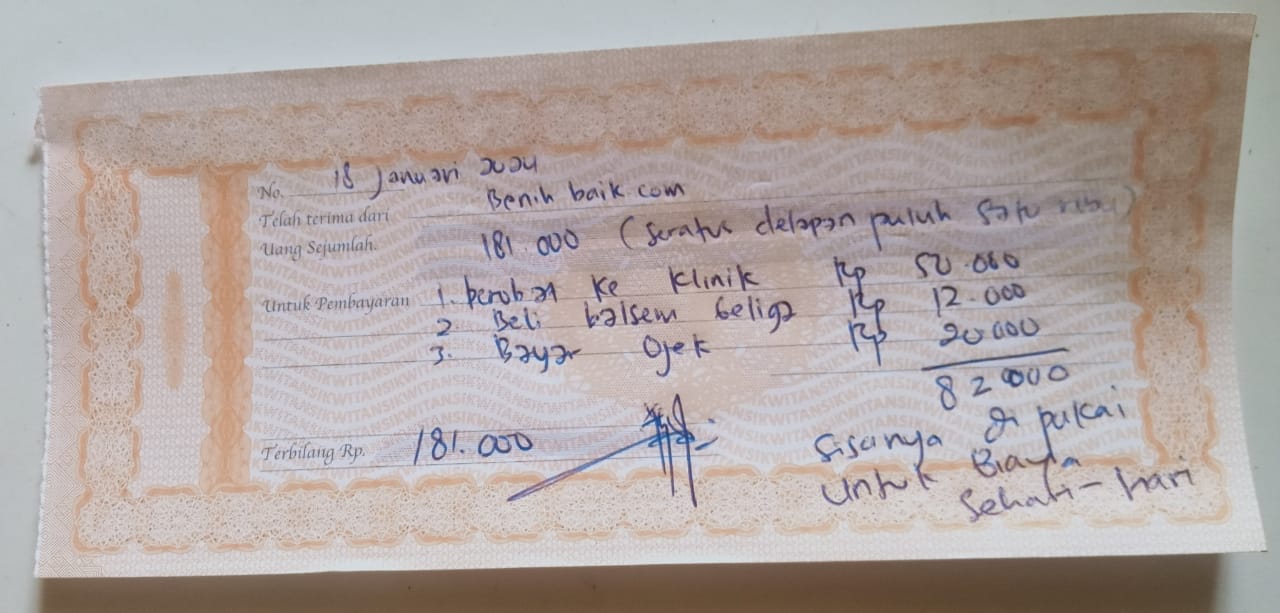 No. 18 Januari 2024
Telah terima dari Benih baik com
Uang Sejumlah. 181.000 (Seratus delapan puluh satu ribu)
Untuk Pembayaran 1. berobat ke Klinik Rp 50.000
2 Beli balsem Geliga Rp 12.000
3. Bayar Ojek Rp 20000
82000
Terbilang Rp. 181.000
Sisanya di pakai
Untuk Biaya
Sehari-hari